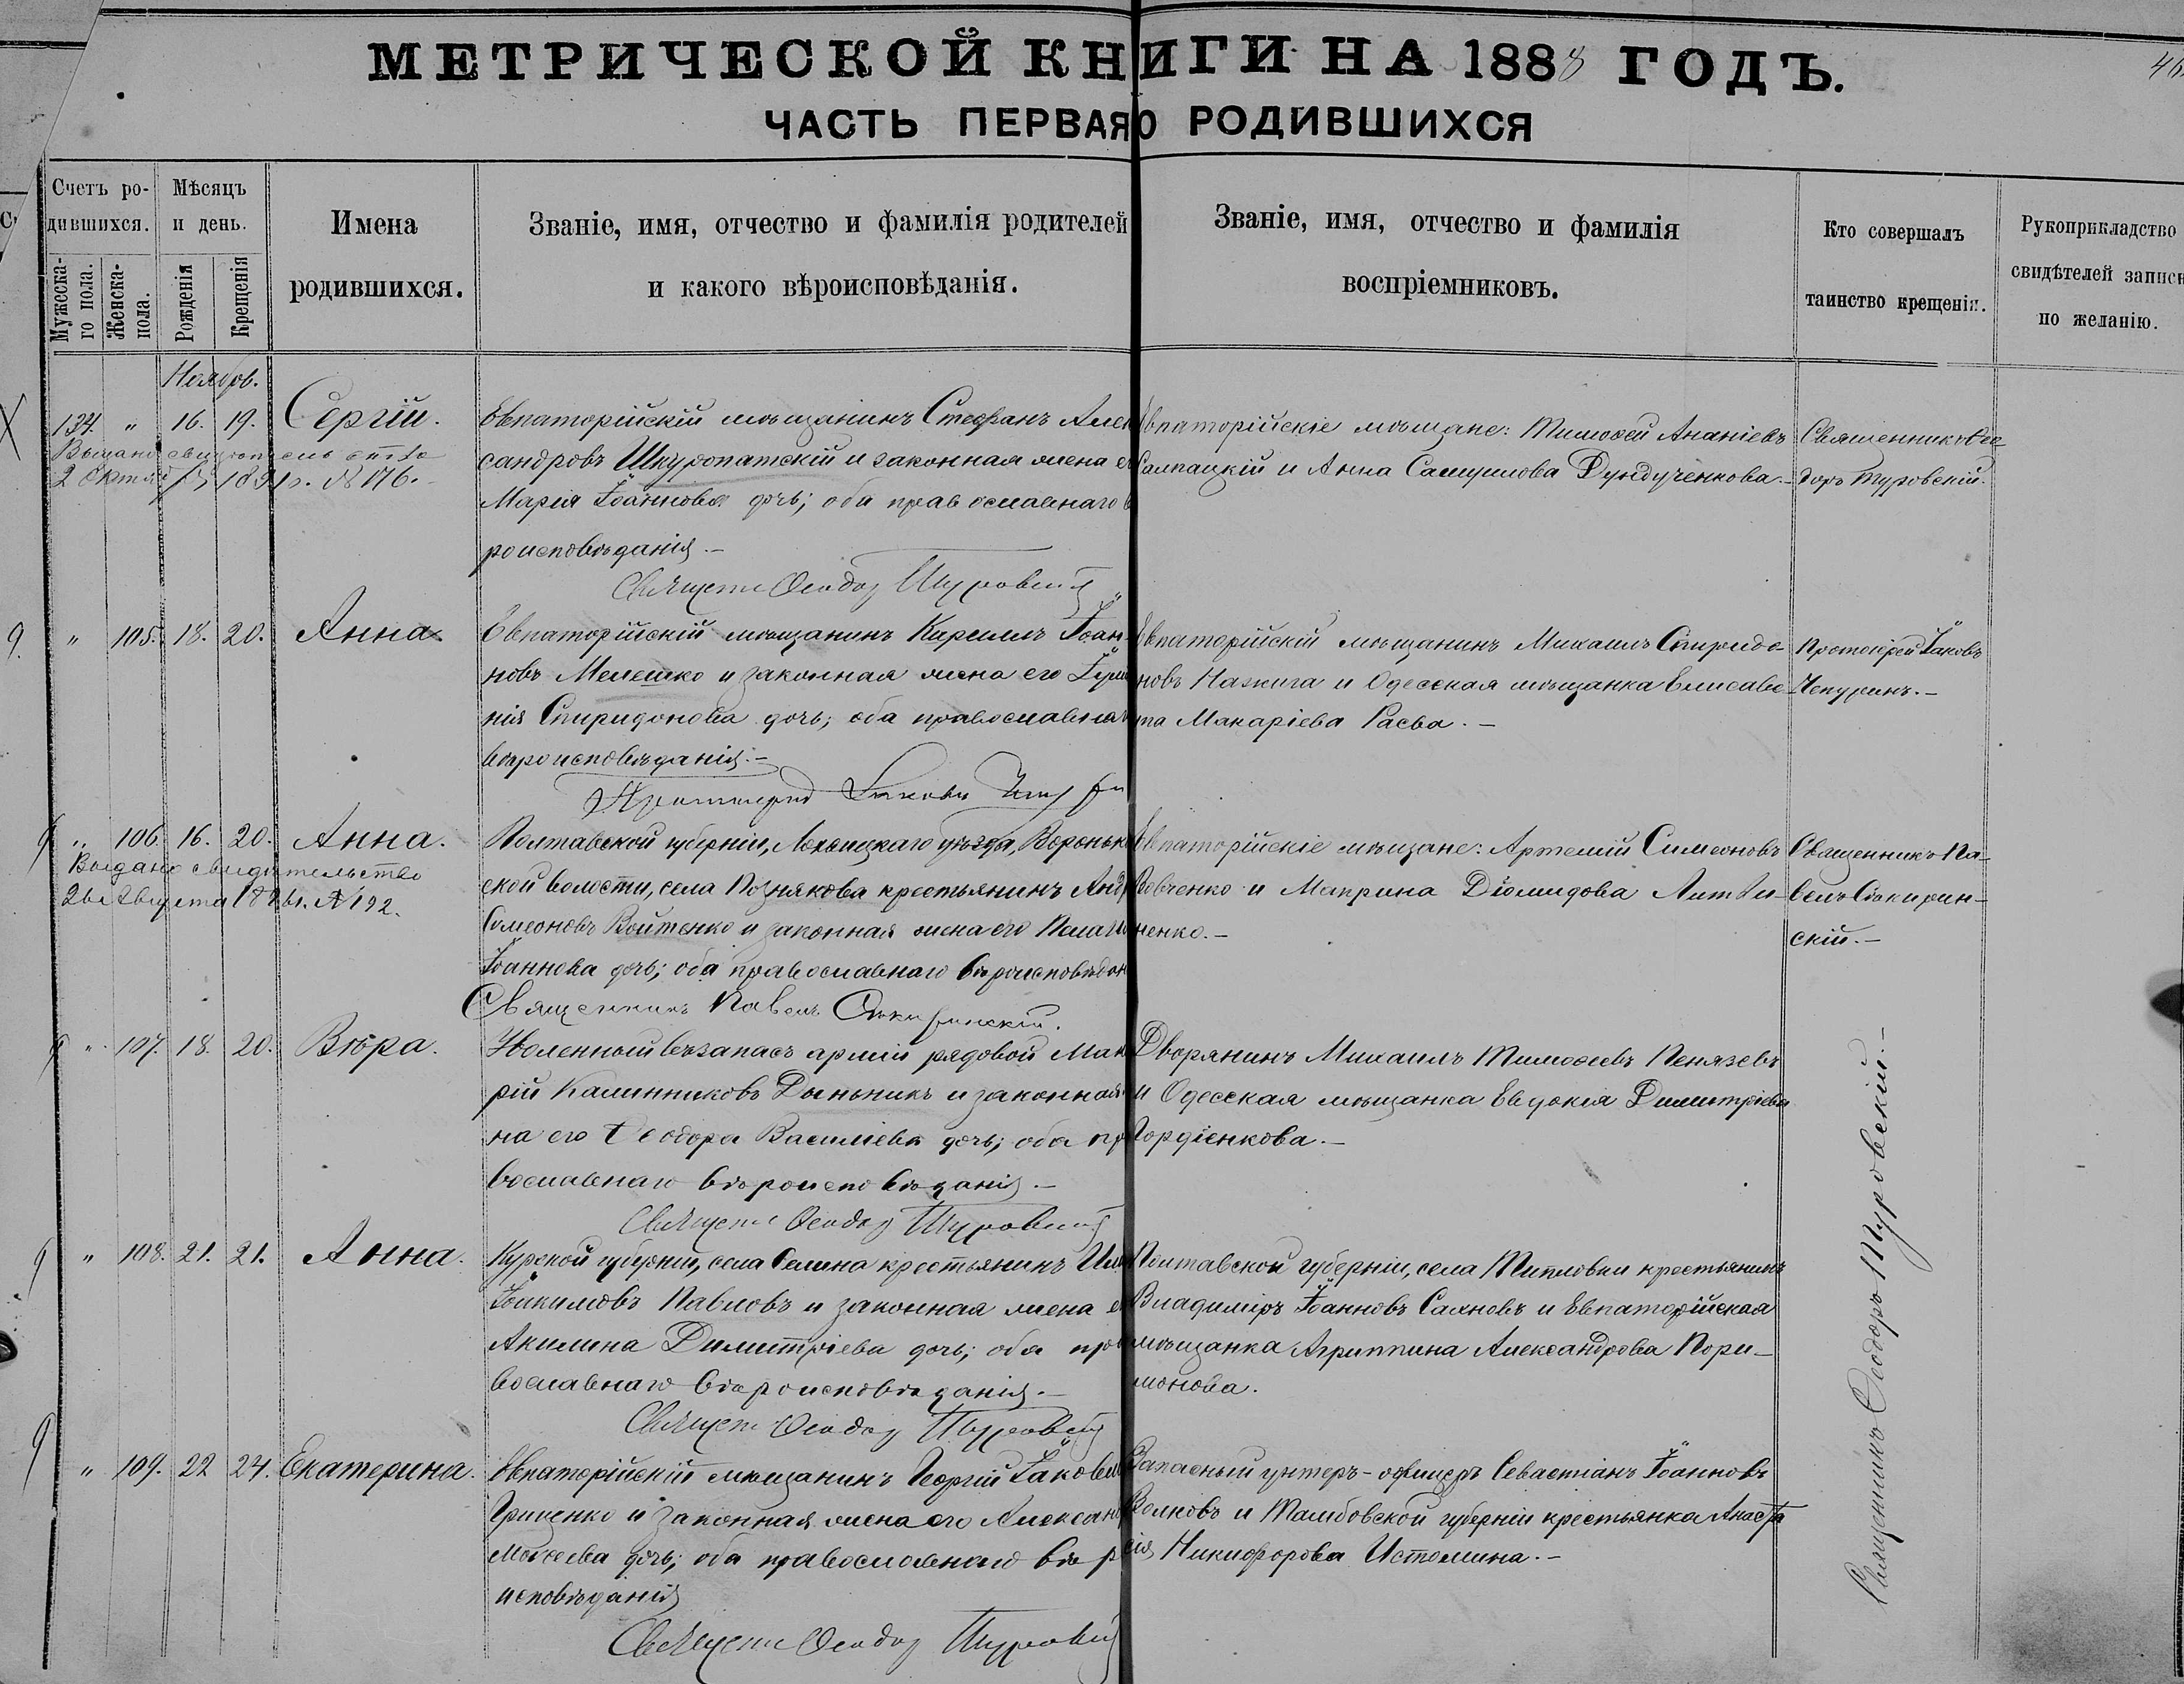 МЕТРИЧЕСКОЙ КНИГИ НА 1888 ГОДЪ.
46
ЧАСТЬ ПЕРВАЯ О РОДИВШИХСЯ
Счетъ ро-
дившихся.
Мужеска-
го пола.
Женска-
пола.
Мѣсяцъ
и день.
Рожденія
Крещенія
Имена
родившихся.
Званіе, имя, отчество и фамилія родителей
и какого вѣроисповѣданія.
Званіе, имя, отчество и фамилія
воспріемниковъ.
Кто совершалъ
таинство крещенія.
Рукоприкладство
свидѣтелей записи
по желанію.
Ноябрь.
134. " 16. 19. Сергій.
Выдано свидѣтельство
2 Октяб 1891 г. № 176.
Евпаторійскій мѣщанинъ Стефанъ Алек
сандровъ Шкуропатскій и законная жена е
Марія Іоаннова дочь; оба православнаго в
роисповѣданія.—
Священ Ѳеодор Туровскій
Евпаторійскіе мѣщане: Тимоѳей Ананіевъ
Сампацкій и Анна Самуилова Дундученкова.—
Священникъ Ѳео
доръ Туровскій.
" 105. 18. 20. Анна
Евпаторійскій мѣщанинъ Кириллъ Іоан-
новъ Мелешко и законная жена его Іули
нія Спиридонова дочь; оба православнаг
вѣроисповѣданія.—
Протоіерей Іаковъ Чепур
Евпаторійскій мѣщанинъ Михаилъ Спиридо-
новъ Назкига и Одесская мѣщанка Елисаве-
та Макаріева Расва.—
Протоіерей Іаковъ
Чепуринъ.—
" 106. 16. 20. Анна.
Выдано свидѣтельство
26 Августа 1896 г. № 192.
Полтавской губерніи, Лохвицкаго уѣзда, Вороньк
ской волости, села Познякова крестьянинъ Андр
Симеоновъ Войтенко и законная жена его Пелаги
Іоаннова дочь; оба православнаго вѣроисповѣдан
Священникъ Павелъ Сѣкиринскій.
Евпаторійскіе мѣщане: Артемій Симеоновъ
Вовченко и Матрина Діомидова Литви-
ненко.—
Священникъ Па-
велъ Сѣкирин-
скій.—
" 107. 18. 20. Вѣра.
Уволенный въ запасъ арміи рядовой Мак
рій Калинниковъ Дыньникъ и законная
на его Ѳеодора Василіева дочь; оба пр
вославнаго вѣроисповѣданія.—
Священ Ѳеодор Туровскій
Дворянинъ Михаилъ Тимоѳеевъ Пенязевъ
и Одесская мѣщанка Евдокія Димитріева
Гордіенкова.—
" 108. 21. 21. Анна.
Курской губерніи, села Селина крестьянинъ Ил
Іоакимовъ Павловъ и законная жена е
Акилина Димитріева дочь; оба пра
вославнаго вѣроисповѣданія.—
Священ Ѳеодор Туровскій
Полтавской губерніи, села Типловки крестьянинъ
Владиміръ Іоанновъ Саяновъ и Евпаторійская
мѣщанка Агриппина Александрова Пори-
монова.
" 109. 22 24. Екатерина.
Евпаторійскій мѣщанинъ Георгій Іаковле
Гриценко и законная жена его Александ
Моѵсеева дочь; оба православнаго вѣ р
исповѣданія
Священ Ѳеодор Туровскій
Запасный унтеръ-офицеръ Севастіанъ Іоанновъ
Волковъ и Тамбовской губерніи крестьянка Анаста
сія Никифорова Истомина.—
Священникъ Ѳеодоръ Туровскій.—